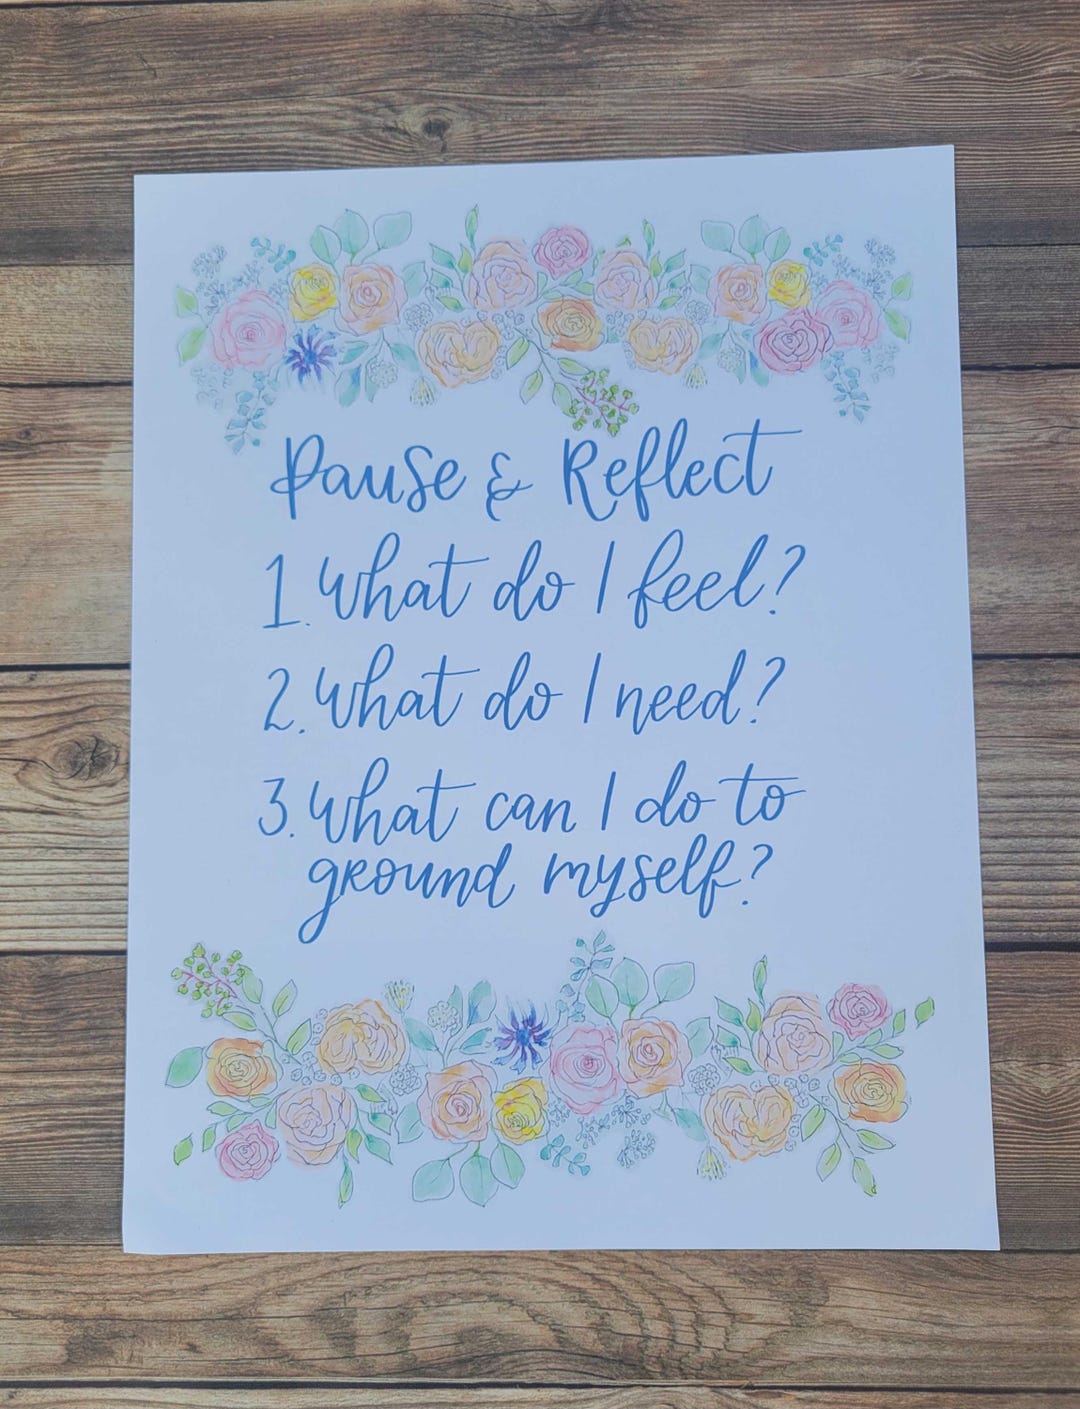 Pause & Reflect
1. What do I feel?
2. What do I need?
3. What can I do to
ground myself?